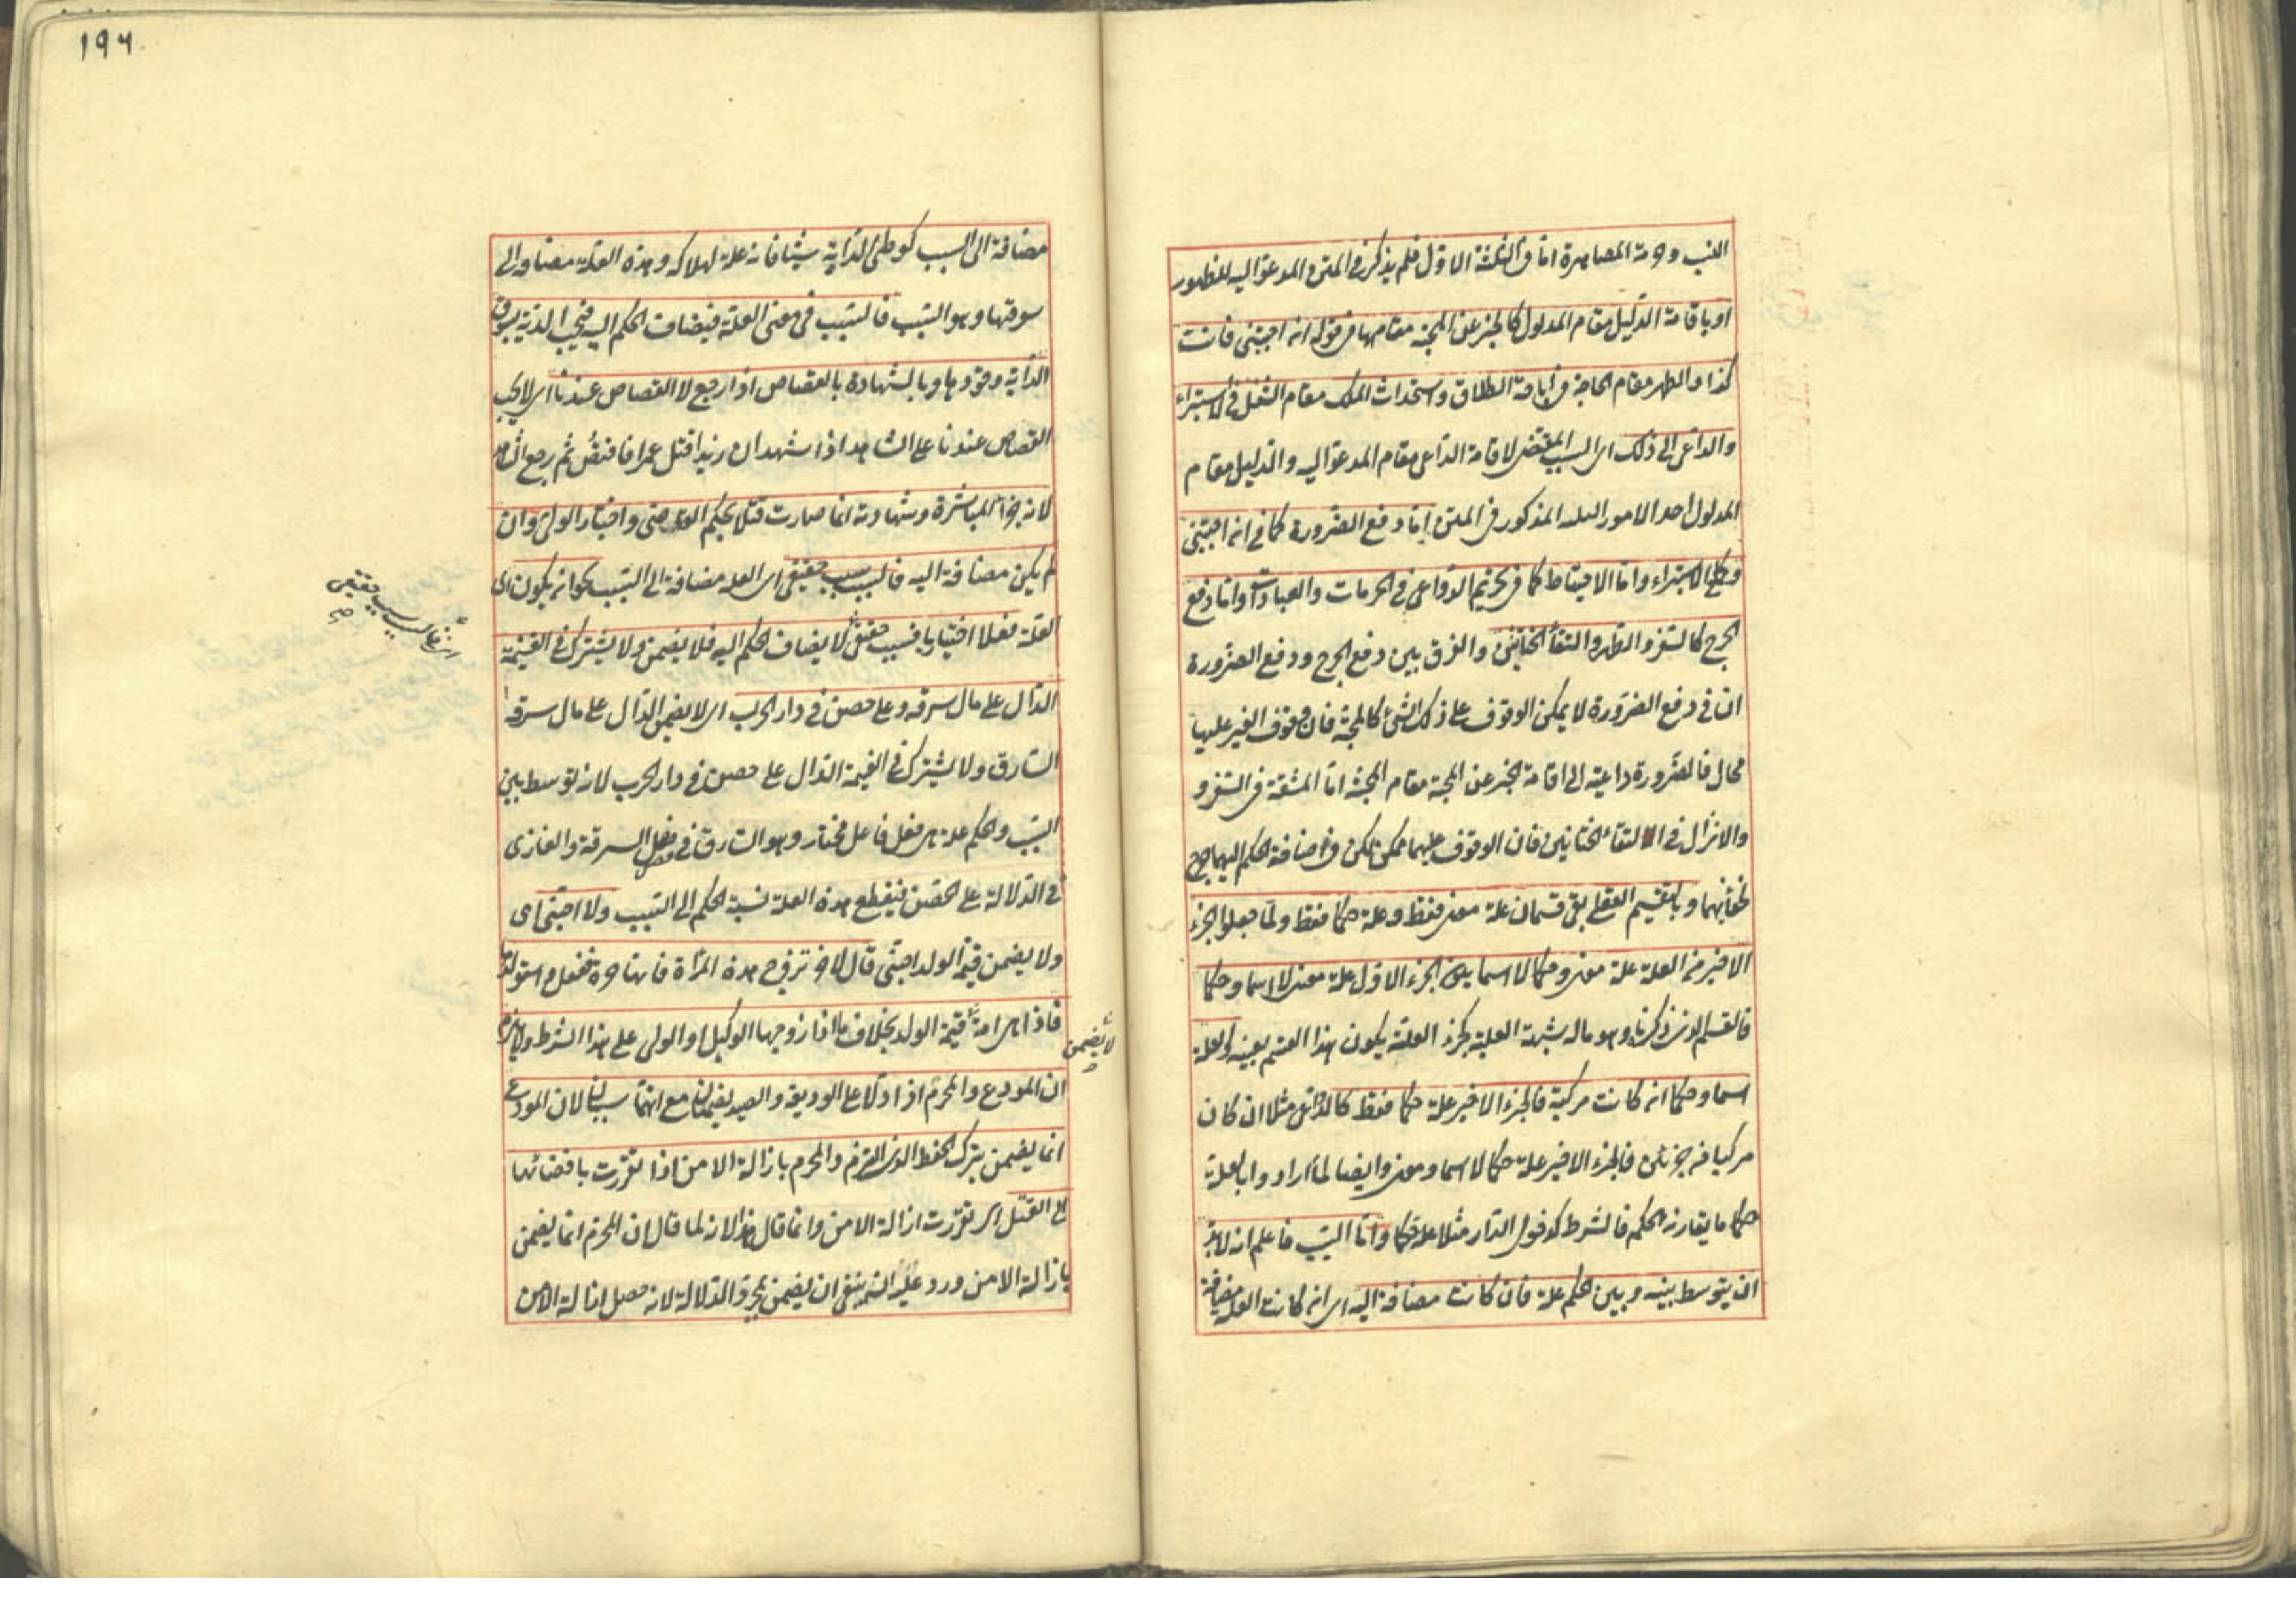 النسب وحرمة المصاهرة اما فى الثلثة الاول فلم يذكر فى المتن المدعو اليه للظهور
او باقامة الدليل مقام المدلول كالخبر عن المحبة مقامها فى قوله ان احببتنى فانت
كذا والطهر مقام الحاجة فى اباحة الطلاق واستحداث الملك مقام الشغل فى الاستبراء
والداعى الى ذلك اى السبب المقتضى لاقامة الداعى مقام المدعو اليه والدليل مقام
المدلول احد الامور الثلثة المذكور فى المتن اما دفع الضرورة كما فى ان احببتنى
وكما فى الاستبراء واما الاحتياط كما فى تحريم الدواعى فى الحرمات والعبادات واما دفع
الحرج كالسفر والطهر والتقاء الختانين والفرق بين دفع الحرج ودفع الضرورة
ان فى دفع الضرورة لا يمكن الوقوف على ذلك الشئ كالمحبة فان وقوف الغير عليها
محال فالضرورة داعية الى اقامة الخبر عن المحبة مقام المحبة اما المشقة فى السفر و
والانزال فى التقاء الختانين فان الوقوف عليهما ممكن لكن فى اضافة الحكم اليهما حرج
لخفائهما وبالتقسيم العقلى بقى قسمان علة معنى فقط وعلة حكما فقط ولما جعلوا الجزء
الاخير من العلة علة معنى وحكما لا اسما يكون الجزء الاول علة معنى لا اسما وحكما
فالقسم الذى ذكرنا وهو ماله شبهة العلية كجزء العلة يكون هذا القسم بعينه والعلة
اسما وحكما ان كانت مركبة فالجزء الاخير علة حكما فقط كالداعى مثلا ان كان
مركبا من جزئين فالجزء الاخير علة حكما لا اسما ومعنى وايضا لما ارادوا بالعلة
حكما ما يقارنه الحكم فالشرط كدخول الدار مثلا علة حكما واما السبب فاعلم انه لا بد
ان يتوسط بينه وبين الحكم علة فان كانت مضافة اليه اى ان كانت العلة مضافة
١٩٦
مضافة الى السبب كوطئ الدابة شيئا فانه علة لهلاكه وهذه العلة مضافة الى
سوقها وهو السبب فالسبب فى معنى العلة فيضاف الحكم اليه فتجب الدية بسوق
الدابة وقودها وبالشهادة بالقصاص اذا رجع لا القصاص عندنا اى لا يجب
القصاص عندنا على الشاهد اذا شهد ان زيدا قتل عمرا فاقتص ثم رجع الشاهد
لانه جزاء المباشرة وشهادته انما صارت قتلا بحكم القاضى واختيار الولى وان
لم يكن مضافة اليه فالسبب سبب حقيقى اى العلة مضافة الى السبب نحو ان يكون اى
العلة فعلا اختياريا فسبب حقيقى لا يضاف الحكم اليه فلا يضمن ولا يشترك فى الغنيمة
الدال على مال سرقه وعلى حصن فى دار الحرب اى لا يضمن الدال على مال سرقه
السارق ولا يشترك فى الغنيمة الدال على حصن فى دار الحرب لانه توسط بين
السبب والحكم علة هى فعل فاعل مختار وهو السارق فى فصل السرقة والغازى
فى الدلالة على الحصن فيقطع هذه العلة نسبة الحكم الى السبب ولا اجنبى اى
ولا يضمن قيمة الولد اجنبى قال لاخر تزوج هذه المرأة فانها حرة ففعل واستولدها
فاذا هى امة قيمة الولد بخلاف ما اذا زوجها الوكيل او الولى على هذا الشرط ولا يلزم
لا يضمن
ان المودع والمحرم اذا دلا على الوديعة والصيد يضمنان مع انهما سببان لان المودع
انما يضمن بترك الحفظ الذى التزم والمحرم بازالة الامن اذا تقررت بافضائها
الى القتل اى تقررت ازالة الامن وانما قال هذا لانه لما قال ان المحرم انما يضمن
بازالة الامن ورد عليه انه ينبغى ان يضمن بمجرد الدلالة لانه حصل ازالة الامن